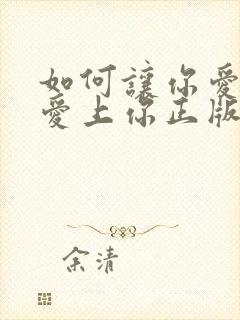 如何讓你愛
愛上你正版
余清